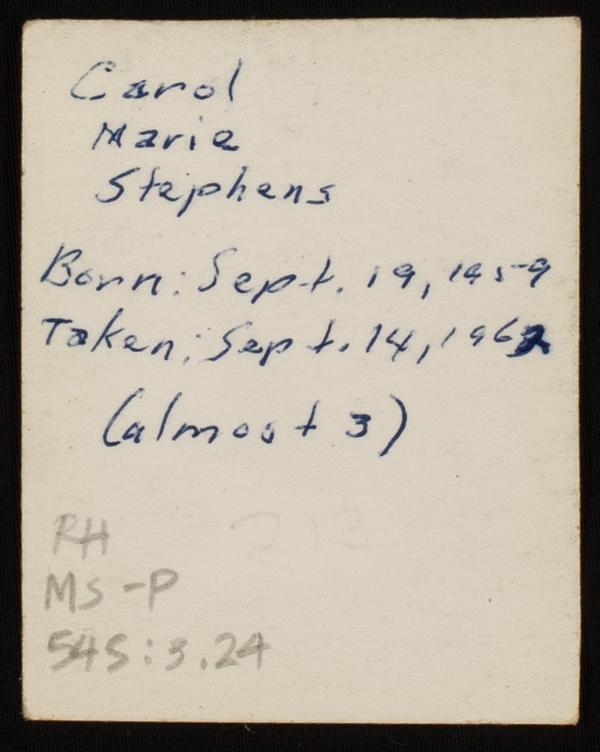 Carol
Marie
Stephens
Born: Sept. 19, 1959
Taken: Sept. 14, 1962
(almost 3)
RH
MS-P
545:3.24